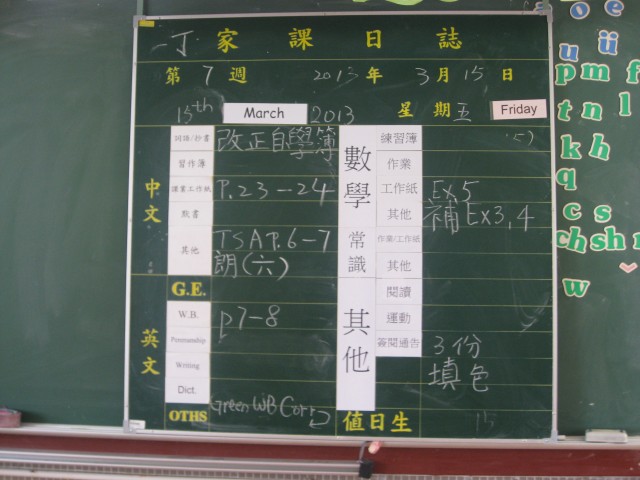 一丁 家課日誌
第 7 週 2013 年 3 月 15 日
15th March 2013 星期五 Friday
中文
詞語/抄書 改正自學簿
習作簿
課業工作紙 P.23-24
默書
其他 TSA P.6-7
朗(六)
G.E.
英文
W.B. p7-8
Penmanship
Writing
Dict.
OTHS Green WB Corr
數學
練習簿
作業
工作紙 Ex5
其他 補Ex3,4
常識
作業/工作紙
其他
其他
閱讀
運動
簽閱通告 3份
填色
值日生 15
o u ü
p m f
t n l
k h
q
c s
ch sh r
w